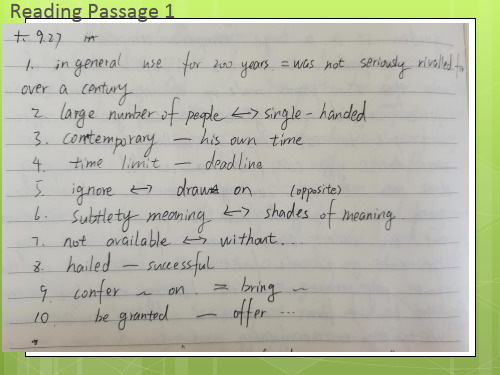 Reading Passage 1
t. 9.27
1. in general use for 200 years = was not seriously rivalled for
over a century
2. large number of people <-> single-handed
3. contemporary — his own time
4. time limit — deadline
5. ignore <-> draw on (opposite)
6. subtlety meaning <-> shades of meaning
7. not available <-> without...
8. hailed — successful
9. confer ~ on = bring ~
10. be granted — offer ...